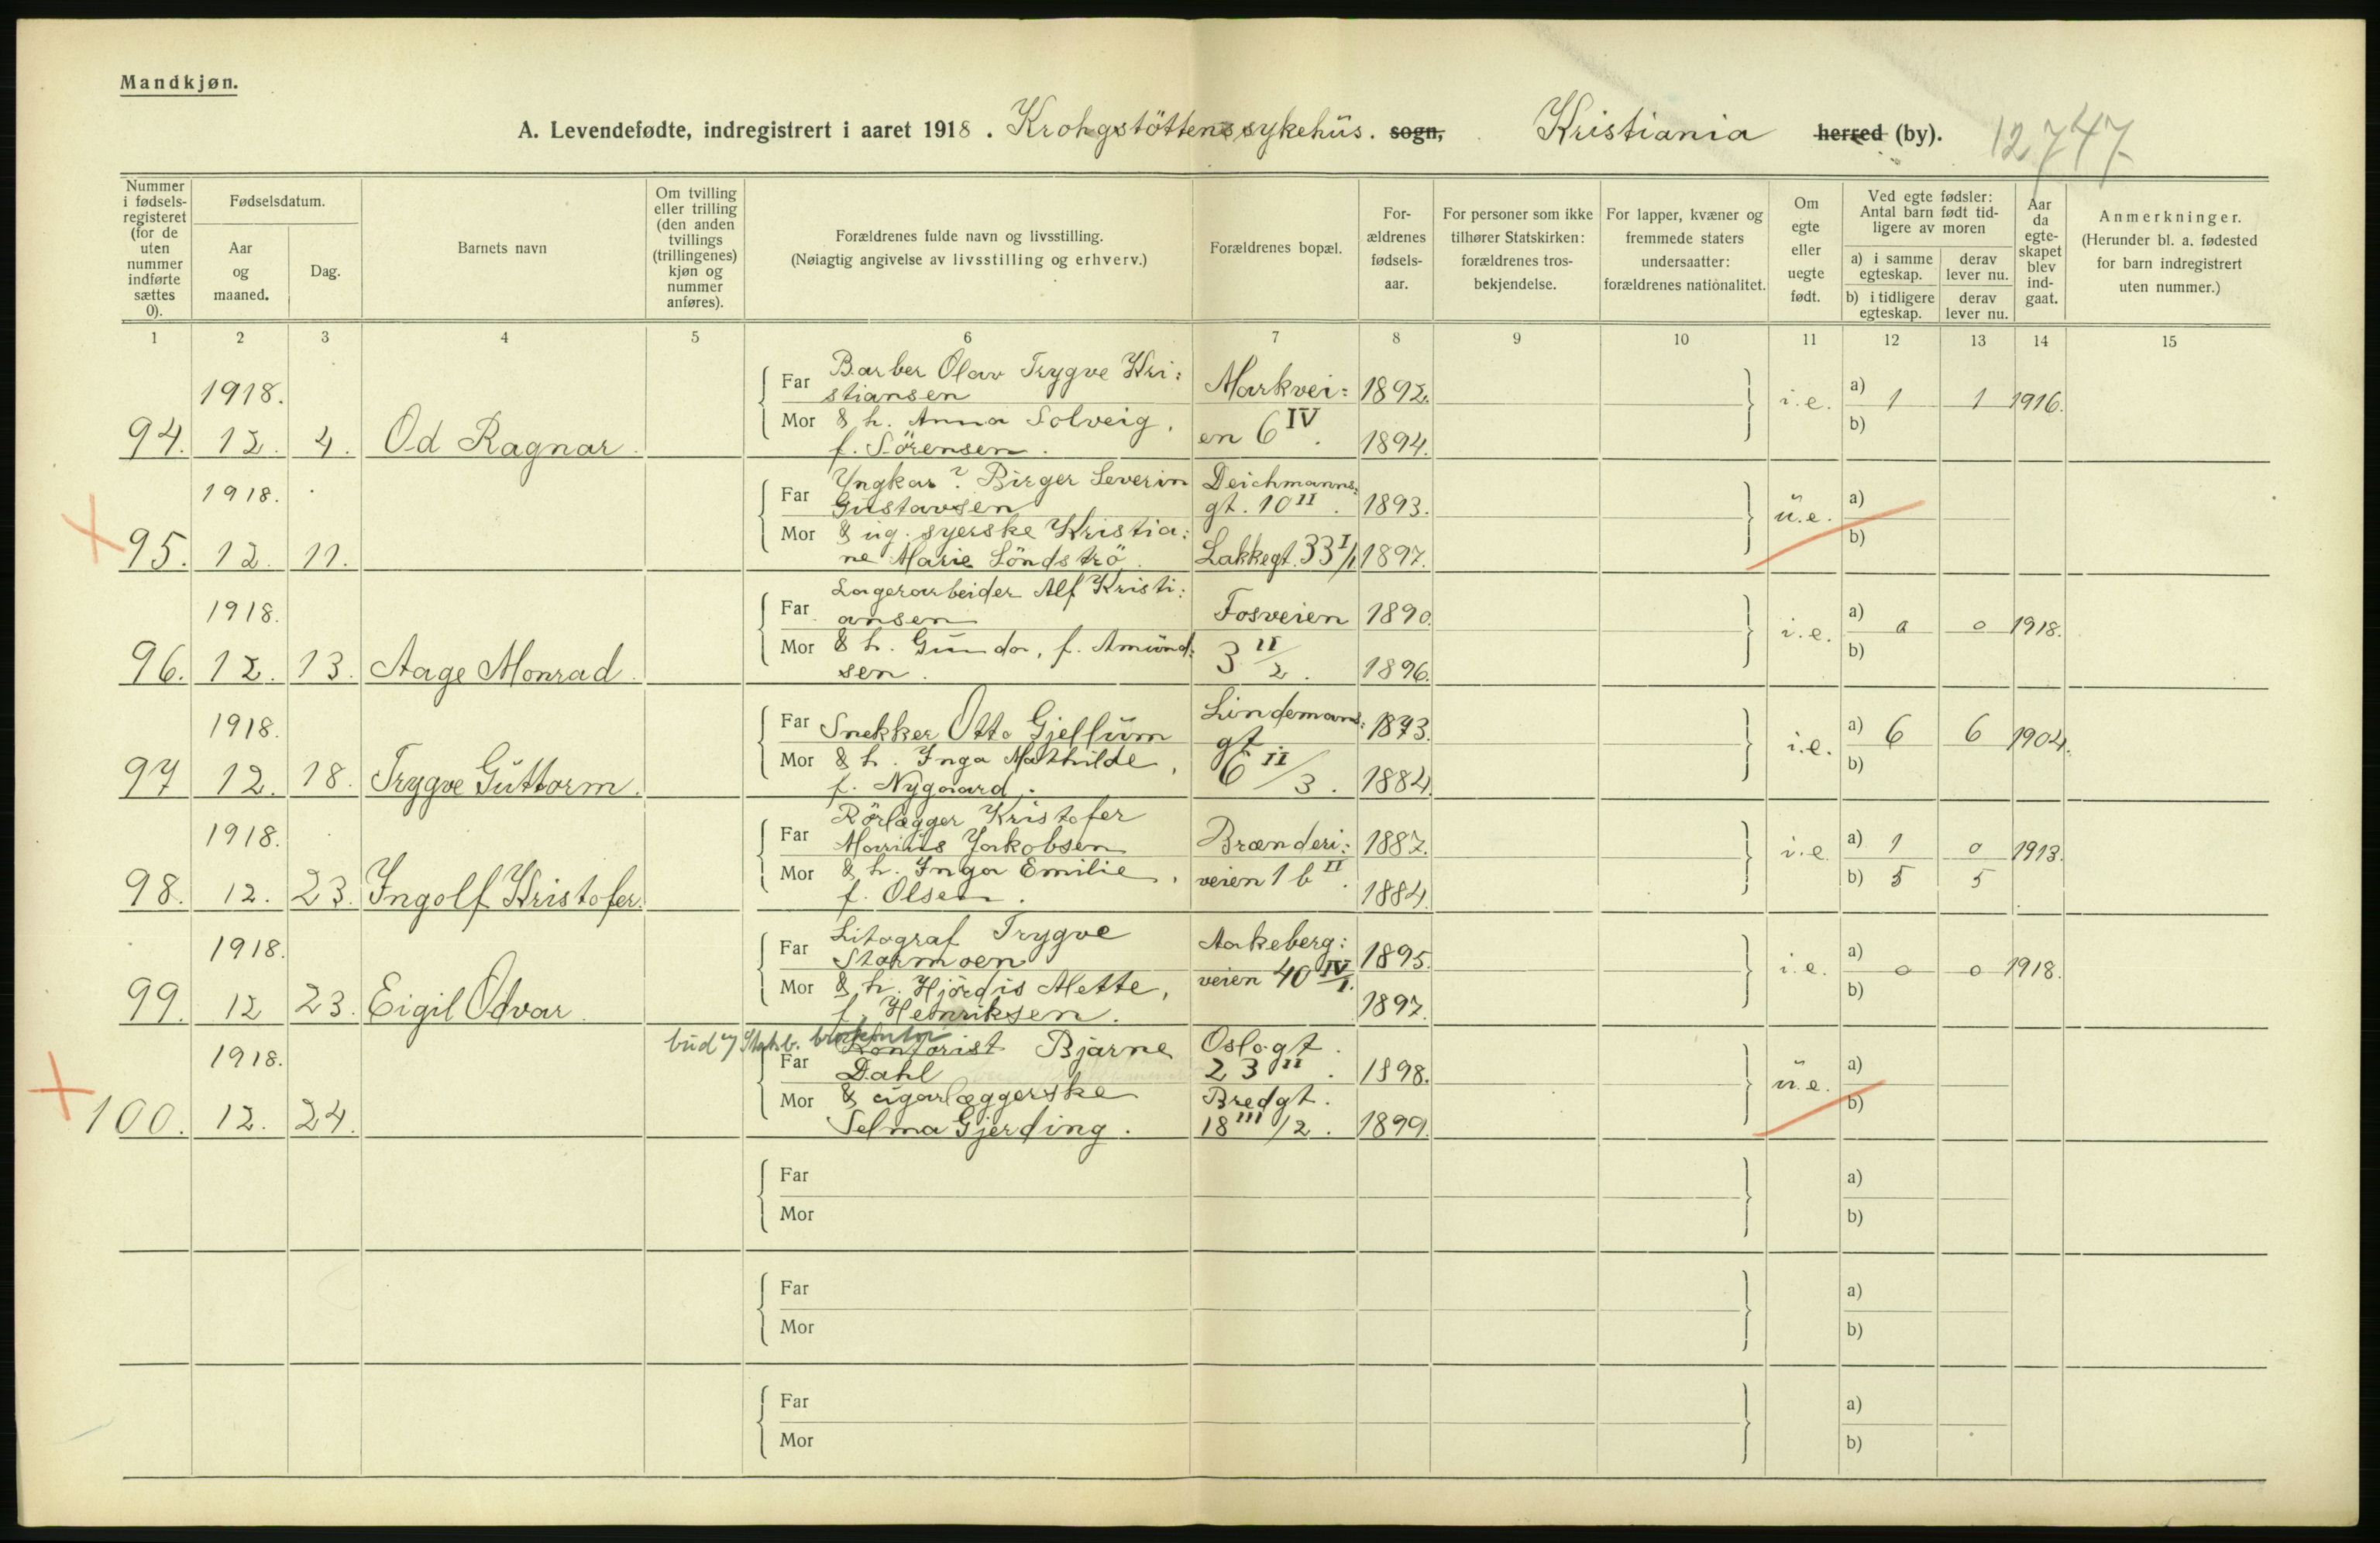 Mandkjøn.
A. Levendefødte, indregistrert i aaret 1918. Krohgstöttens sykehüs. sogn, Kristiania herred (by). 12747
Nummer i fødsels-registeret (for de uten nummer indførte sættes 0).
Fødselsdatum.
Aar og maaned.
Dag.
Barnets navn
Om tvilling eller trilling (den anden tvillings (trillingenes) kjøn og nummer anføres).
Forældrenes fulde navn og livsstilling.
(Nøiagtig angivelse av livsstilling og erhverv.)
Forældrenes bopæl.
For-ældrenes fødsels-aar.
For personer som ikke tilhører Statskirken: forældrenes tros-bekjendelse.
For lapper, kvæner og fremmede staters undersaatter: forældrenes nationalitet.
Om egte eller uegte født.
Ved egte fødsler: Antal barn født tid-ligere av moren
a) i samme egteskap.
derav lever nu.
b) i tidligere egteskap.
derav lever nu.
Aar da egte-skapet blev ind-gaat.
Anmerkninger.
(Herunder bl. a. fødested for barn indregistrert uten nummer.)
1 2 3 4 5 6 7 8 9 10 11 12 13 14 15
1918.
94. 12. 4. Od Ragnar.
Far Barber Olav Trygve Kri:
stiansen
Mor & h. Anna Solveig,
f. Sörensen.
Markvei:
en 6 IV.
1892.
1894.
i.e. a) 1 1 1916.
b)
1918.
95. 12. 11.
Far Yngkar? Birger Severin
Güstavsen
Mor & üg. syerske Kristia:
ne Marie Löndströ.
Deichmanns:
gt. 10 II.
Lakkegt. 33 I/1
1893.
1897.
ü.e. a)
b)
1918.
96. 12. 13. Aage Monrad.
Far Lagerarbeider Alf Kristi:
ansen
Mor & h. Günda, f. Amünd:
sen.
Fosveien
3 II/2.
1890.
1896.
i.e. a) 0 0 1918.
b)
1918.
97 12. 18. Trygve Güttorm.
Far Snekker Otto Gjellüm
Mor & h. Inga Mathilde,
f. Nygaard.
Lindemans:
gt.
6 II/3.
1873.
1884.
i.e. a) 6 6 1904.
b)
1918.
98. 12. 23. Ingolf Kristofer.
Far Rörlægger Kristofer
Mariüs Jakobsen
Mor & h. Inga Emilie,
f. Olsen.
Brænderi:
veien 1 b II.
1887.
1884.
i.e. a) 1 0 1913.
b) 5 5
1918.
99. 12 23. Eigil Odvar.
Far Litograf Trygve
Stormoen
Mor & h. Hjördis Mette,
f. Henriksen.
Aakeberg:
veien 40 IV/1.
1895.
1897.
i.e. a) 0 0 1918.
b)
1918.
100. 12. 24.
büd
Far Kontorist Bjarne
Dahl
Mor & cigarlæggerske
Selma Gjerding.
Oslogt.
23 II.
Bredgt.
18 III/2.
1898.
1899.
ü.e. a)
b)
Far
Mor
a)
b)
Far
Mor
a)
b)
Far
Mor
a)
b)